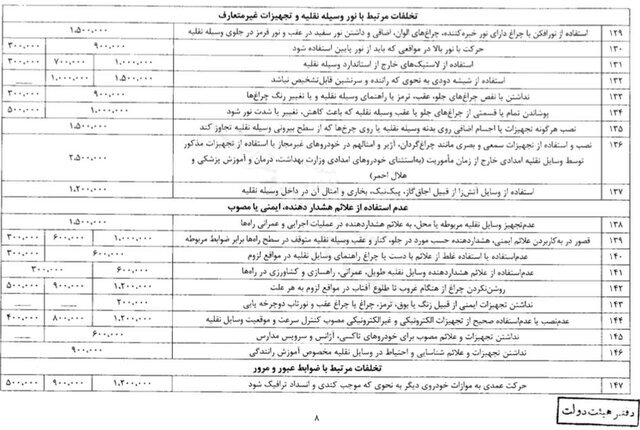 تخلفات مرتبط با نور وسیله نقلیه و تجهیزات غیرمتعارف
۱۲۹ استفاده از نورافکن یا چراغ دارای نور خیره‌کننده، چراغ‌های الوان، اضافی و داشتن نور سفید در عقب و نور قرمز در جلوی وسیله نقلیه ۱،۵۰۰،۰۰۰
۱۳۰ حرکت با نور بالا در مواقعی که باید از نور پایین استفاده شود ۹۰۰،۰۰۰ ۳۰۰،۰۰۰
۱۳۱ استفاده از لاستیک‌های خارج از استاندارد وسیله نقلیه ۱،۰۰۰،۰۰۰ ۷۰۰،۰۰۰ ۳۰۰،۰۰۰
۱۳۲ استفاده از شیشه دودی به نحوی که راننده و سرنشین قابل‌تشخیص نباشد ۱،۵۰۰،۰۰۰ ۱،۰۰۰،۰۰۰ ـــ
۱۳۳ نداشتن یا نقص چراغ‌های جلو، عقب، ترمز یا راهنمای وسیله نقلیه و یا تغییر رنگ چراغ‌ها ۹۰۰،۰۰۰ ۳۰۰،۰۰۰
۱۳۴ پوشاندن تمام یا قسمتی از چراغ‌های جلو یا عقب وسیله نقلیه که باعث کاهش، تغییر یا شدت نور شود ۱،۰۰۰،۰۰۰ ۵۰۰،۰۰۰
۱۳۵ نصب هرگونه تجهیزات یا اجسام اضافی روی بدنه وسیله نقلیه یا روی چرخ‌ها که از سطح بیرونی وسیله نقلیه تجاوز کند ۱،۵۰۰،۰۰۰
۱۳۶ نصب و استفاده از تجهیزات سمعی و بصری مانند چراغ‌گردان، آژیر و امثالهم در خودروهای غیرمجاز یا استفاده از تجهیزات مذکور
توسط وسایل نقلیه امدادی خارج از زمان مأموریت (به‌استثنای خودروهای امدادی وزارت بهداشت، درمان و آموزش پزشکی و ۲،۵۰۰،۰۰۰
هلال احمر)
۱۳۷ استفاده از وسایل آتش‌زا از قبیل اجاق‌گاز، پیک‌نیک، بخاری و امثال آن در داخل وسیله نقلیه ۱،۲۰۰،۰۰۰
عدم استفاده از علائم هشدار دهنده، ایمنی یا مصوب
۱۳۸ عدم‌تجهیز وسایل نقلیه مربوطه یا محل، به علائم هشداردهنده در عملیات اجرایی و عمرانی راه‌ها ۱،۵۰۰،۰۰۰
۱۳۹ قصور در به‌کاربردن علائم ایمنی، هشداردهنده حسب مورد در جلو، کنار و عقب وسیله نقلیه متوقف در سطح راه‌ها برابر ضوابط مربوطه ۱،۰۰۰،۰۰۰ ۶۰۰،۰۰۰ ۳۰۰،۰۰۰
۱۴۰ عدم‌استفاده یا استفاده غلط از علائم با دست یا چراغ راهنمای وسایل نقلیه در مواقع لزوم ۶۰۰،۰۰۰ ۳۰۰،۰۰۰
۱۴۱ عدم‌استفاده از علائم هشداردهنده وسایل نقلیه طویل، عمرانی، راهسازی و کشاورزی در راه‌ها ۶۰۰،۰۰۰ ۳۰۰،۰۰۰
۱۴۲ روشن‌نکردن چراغ از هنگام غروب تا طلوع آفتاب در مواقع لزوم به هر علت ۱،۲۰۰،۰۰۰ ۹۰۰،۰۰۰ ۵۰۰،۰۰۰
۱۴۳ نداشتن تجهیزات ایمنی از قبیل زنگ یا بوق، ترمز، چراغ یا چراغ عقب و نورتاب دوچرخه پایی ۲۰۰،۰۰۰ ـــ
۱۴۴ عدم‌نصب یا عدم‌استفاده صحیح از تجهیزات الکترونیکی و غیرالکترونیکی مصوب کنترل سرعت و موقعیت وسایل نقلیه ۱،۲۰۰،۰۰۰ ۸۰۰،۰۰۰ ۴۰۰،۰۰۰
۱۴۵ نداشتن تجهیزات و علائم مصوب برای خودروهای تاکسی، آژانس و سرویس مدارس ۶۰۰،۰۰۰ ـــ
۱۴۶ نداشتن تجهیزات و علائم شناسایی و احتیاط در وسایل نقلیه مخصوص آموزش رانندگی ۹۰۰،۰۰۰
تخلفات مرتبط با ضوابط عبور و مرور
۱۴۷ حرکت عمدی به موازات خودروی دیگر به نحوی که موجب کندی و انسداد ترافیک شود ۱،۲۰۰،۰۰۰ ۹۰۰،۰۰۰ ۵۰۰،۰۰۰
۸
دفتر هیئت دولت